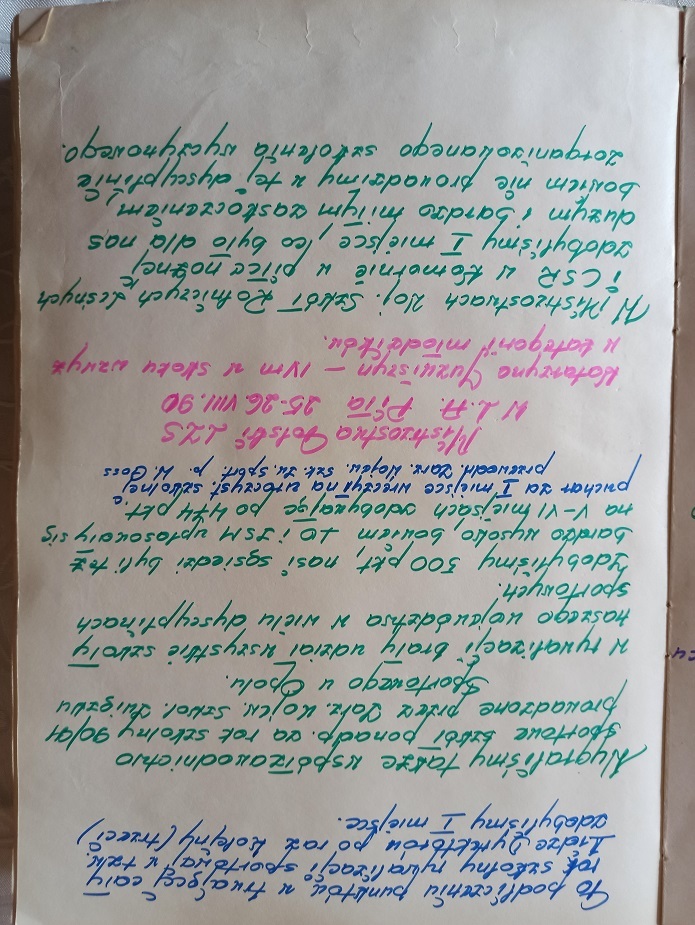 Po podliczeniu punktów w trwającej cały
rok szkolny rywalizacji sportowa w tzw.
Lidze Dyrektorów po raz kolejny (trzeci)
zdobyliśmy I miejsce.
Wygraliśmy także współzawodnictwo
sportowe szkół ponadp. za rok szkolny 90/91
prowadzone przez Zarz. Wojew. Szkol. Związku
Sportowego w Opolu.
W rywalizacji brały udział wszystkie szkoły
naszego województwa w wielu dyscyplinach
sportowych.
Zdobyliśmy 500 pkt, nasi sąsiedzi byli też
bardzo wysoko bowiem TO i ZSM uplasowały się
na V-VI miejscach zdobywając po 474 pkt.
puchar za I miejsce wręczył na uroczyst. szkolnej
przewodn. Zarz. Wojew. Szk. Zw. Sport. p. W. Goss
Mistrzostwa Polski LZS
W L.A. Piła 25-26 VIII. 90
Katarzyna Juzwiszyn – IV m w skoku wzwyż
w kategorii młodzików.
W Mistrzostwach Woj. Szkół Rolniczych Leśnych
i CSR w Komornie w piłce nożnej
zdobyliśmy I miejsce, co było dla nas
dużym i bardzo miłym zaskoczeniem,
bowiem nie prowadzimy w tej dyscyplinie
zorganizowanego szkolenia wyczynowego.